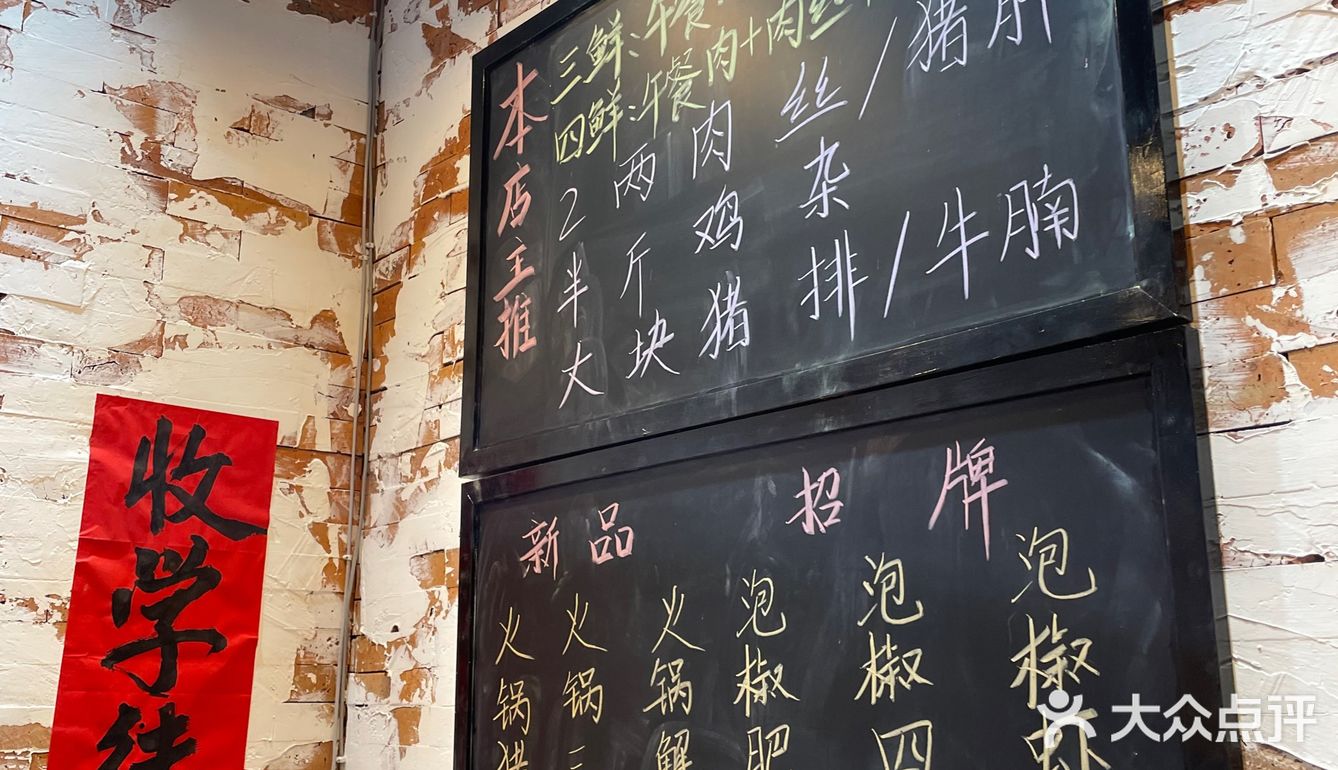 本店主推
三鲜:午餐
四鲜:午餐肉+肉丝
2两肉丝/猪肝
半斤鸡杂
大块猪排/牛腩
新品 招牌
火锅猪
火锅三
火锅蟹
泡椒肥
泡椒四
泡椒
收学徒
大众点评